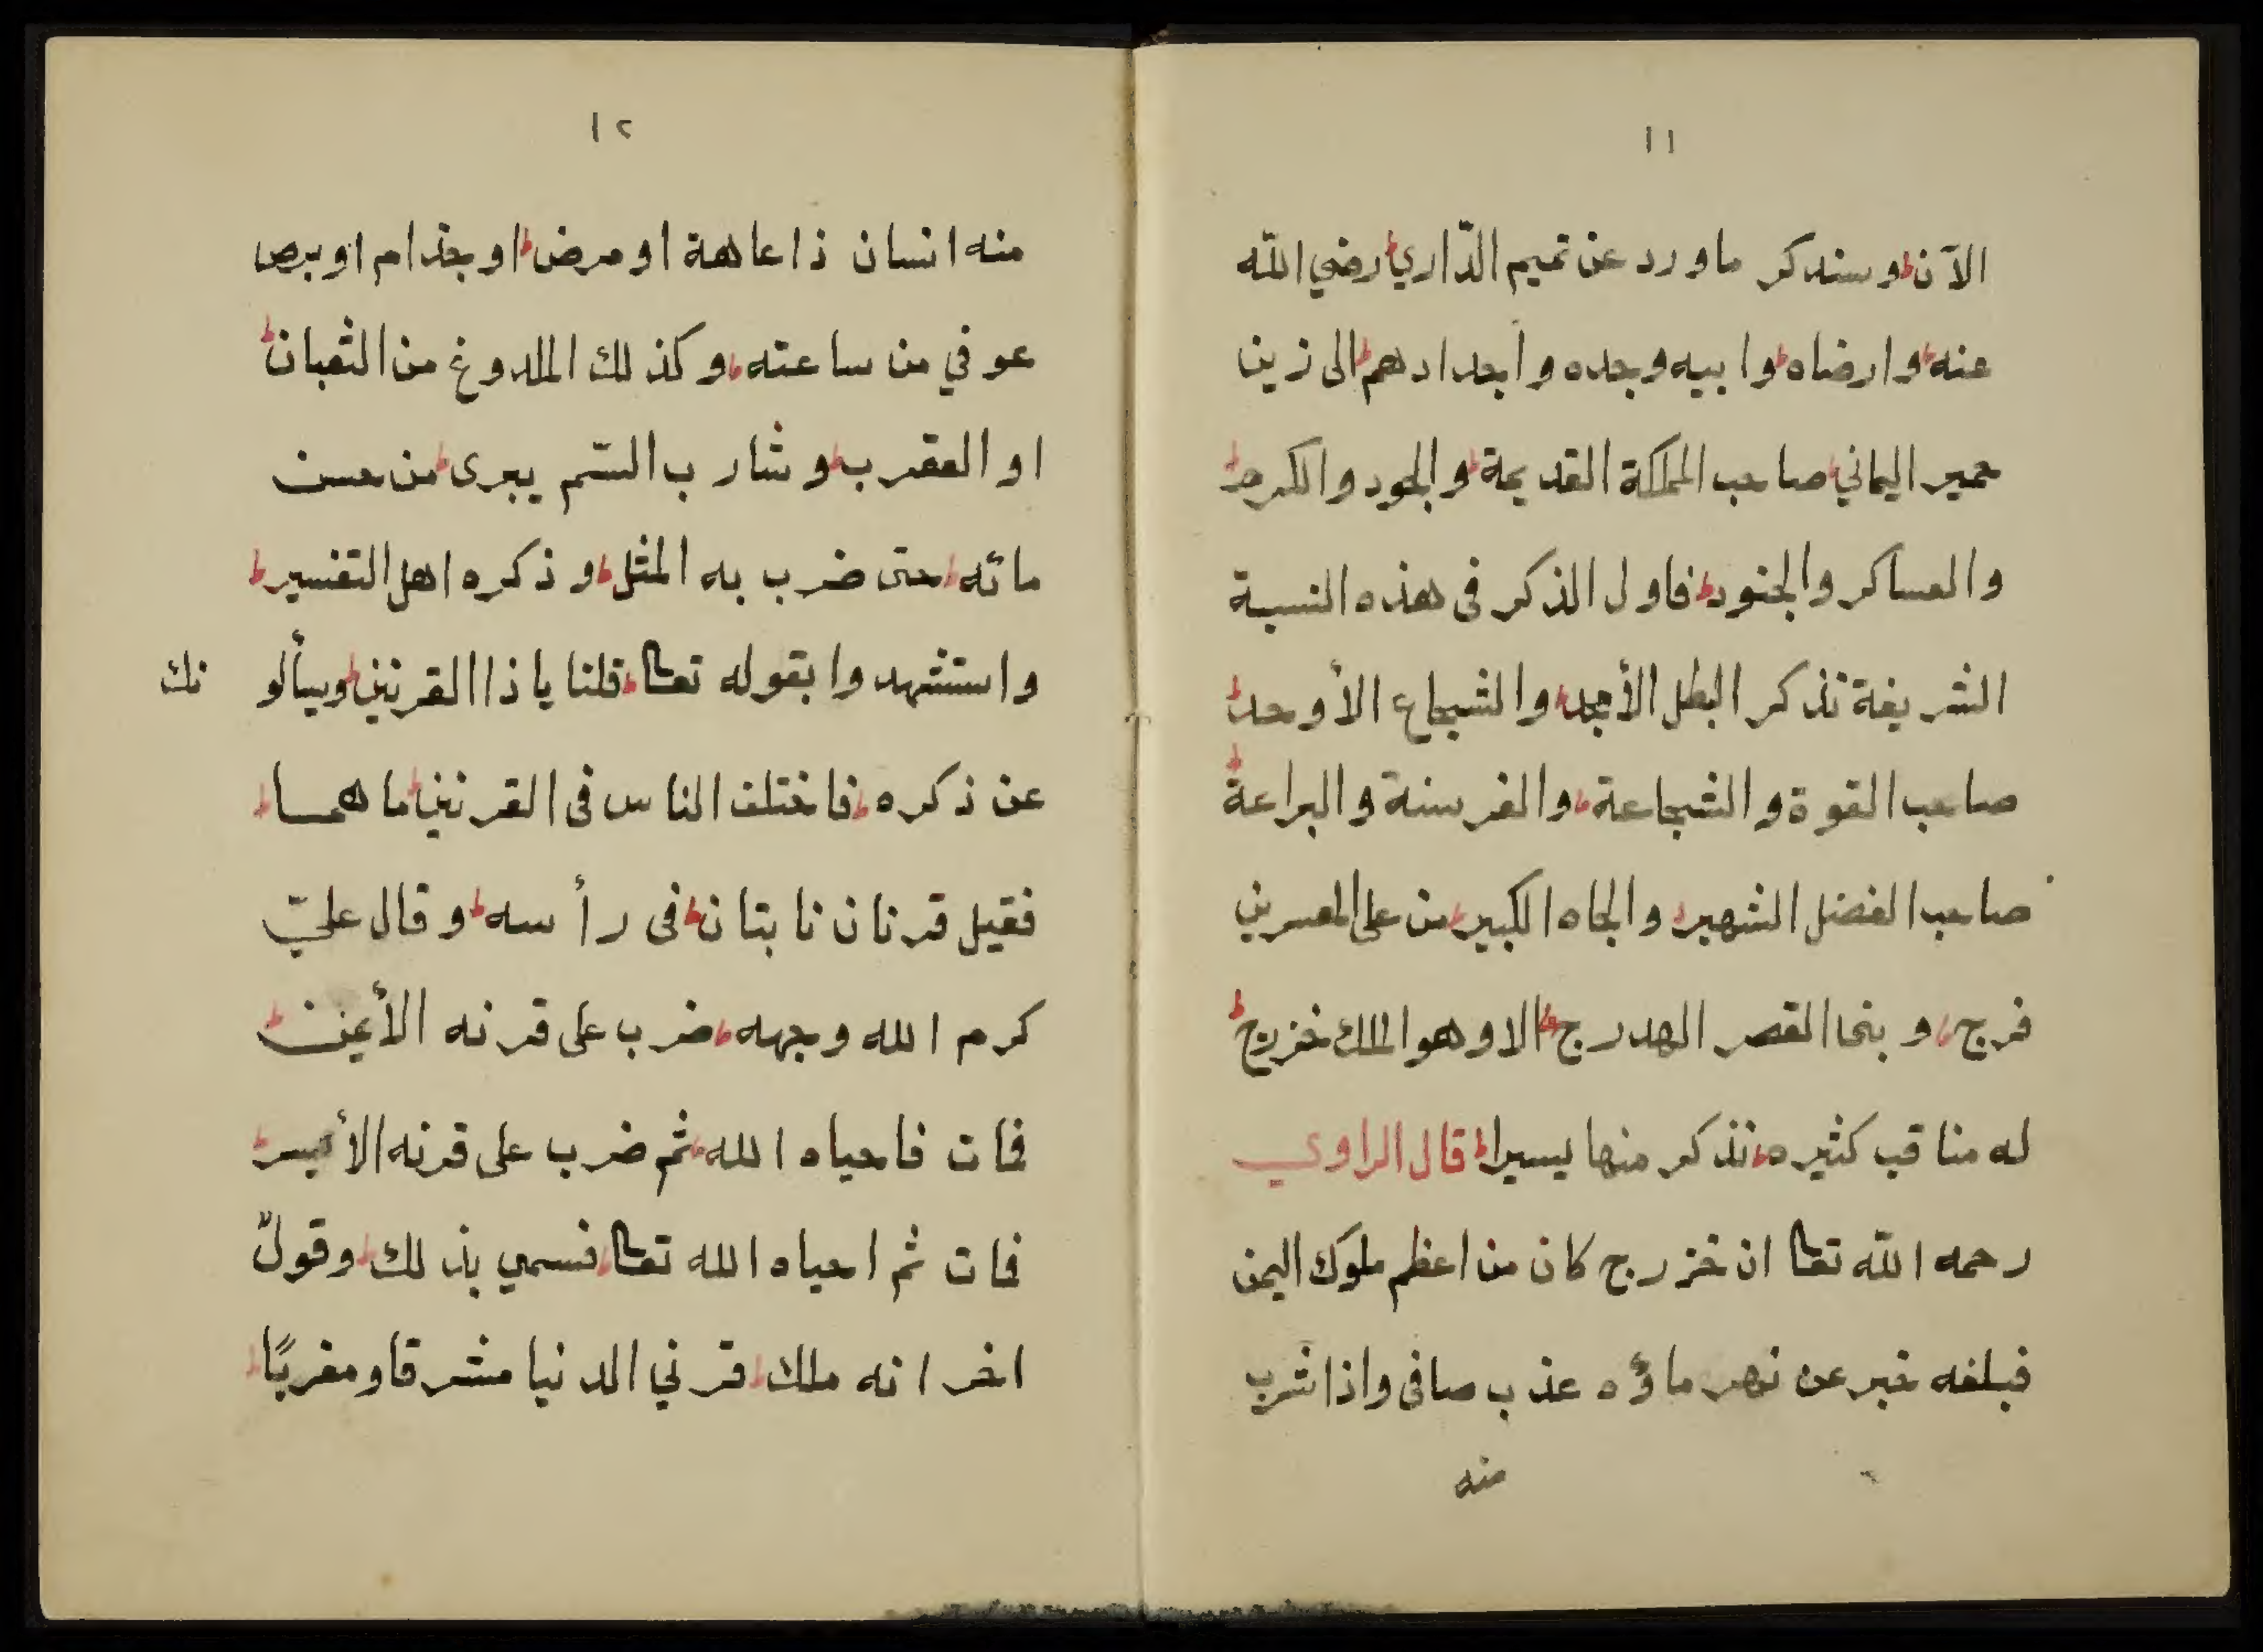 ١١
الآن وسنذكر ما ورد عن تميم الدّاري رضي اللّه
عنه وارضاه وابيه وجده واجدادهم الى زين
حمير اليماني صاحب المملكة القديمة والجود والكرم
والعساكر والجنود فاول الذكر فى هذه النسبة
الشريفة نذكر البطل الأمجد والشجاع الأوحد
صاحب القوة والشجاعة والفرسنة والبراعة
صاحب الفضل الشهير والجاه الكبير من على المعسرين
فرج وبنا القصر الهدرج الا وهو الملك خزرج
له مناقب كثيره نذكر منها يسيرا قال الراوي
رحمه اللّه تعا ان خزرج كان من اعظم ملوك اليمن
فبلغه خبر عن نهر ماؤه عذب صافى واذا شرب
منه
١٢
منه انسان ذا عاهة او مرض او جذام او برص
عوفي من ساعته وكذلك الملدوغ من الثعبان
او العقرب وشارب السّم يبرى من حسن
مائه حتى ضرب به المثل وذكره اهل التفسير
واستشهدوا بقوله تعا قلنا يا ذا القرنين ويسألو نك
عن ذكره فاختلف الناس فى القرنين ما هما
فقيل قرنان نابتان فى رأسه وقال عليّ
كرم الله وجهه ضرب على قرنه الأيمن
فمات فاحياه الله ثم ضرب على قرنه الأيسر
فمات ثم احياه الله تعا فسمي بذلك وقولٌ
اخر انه ملك قرني الدنيا مشرقا ومغربًا